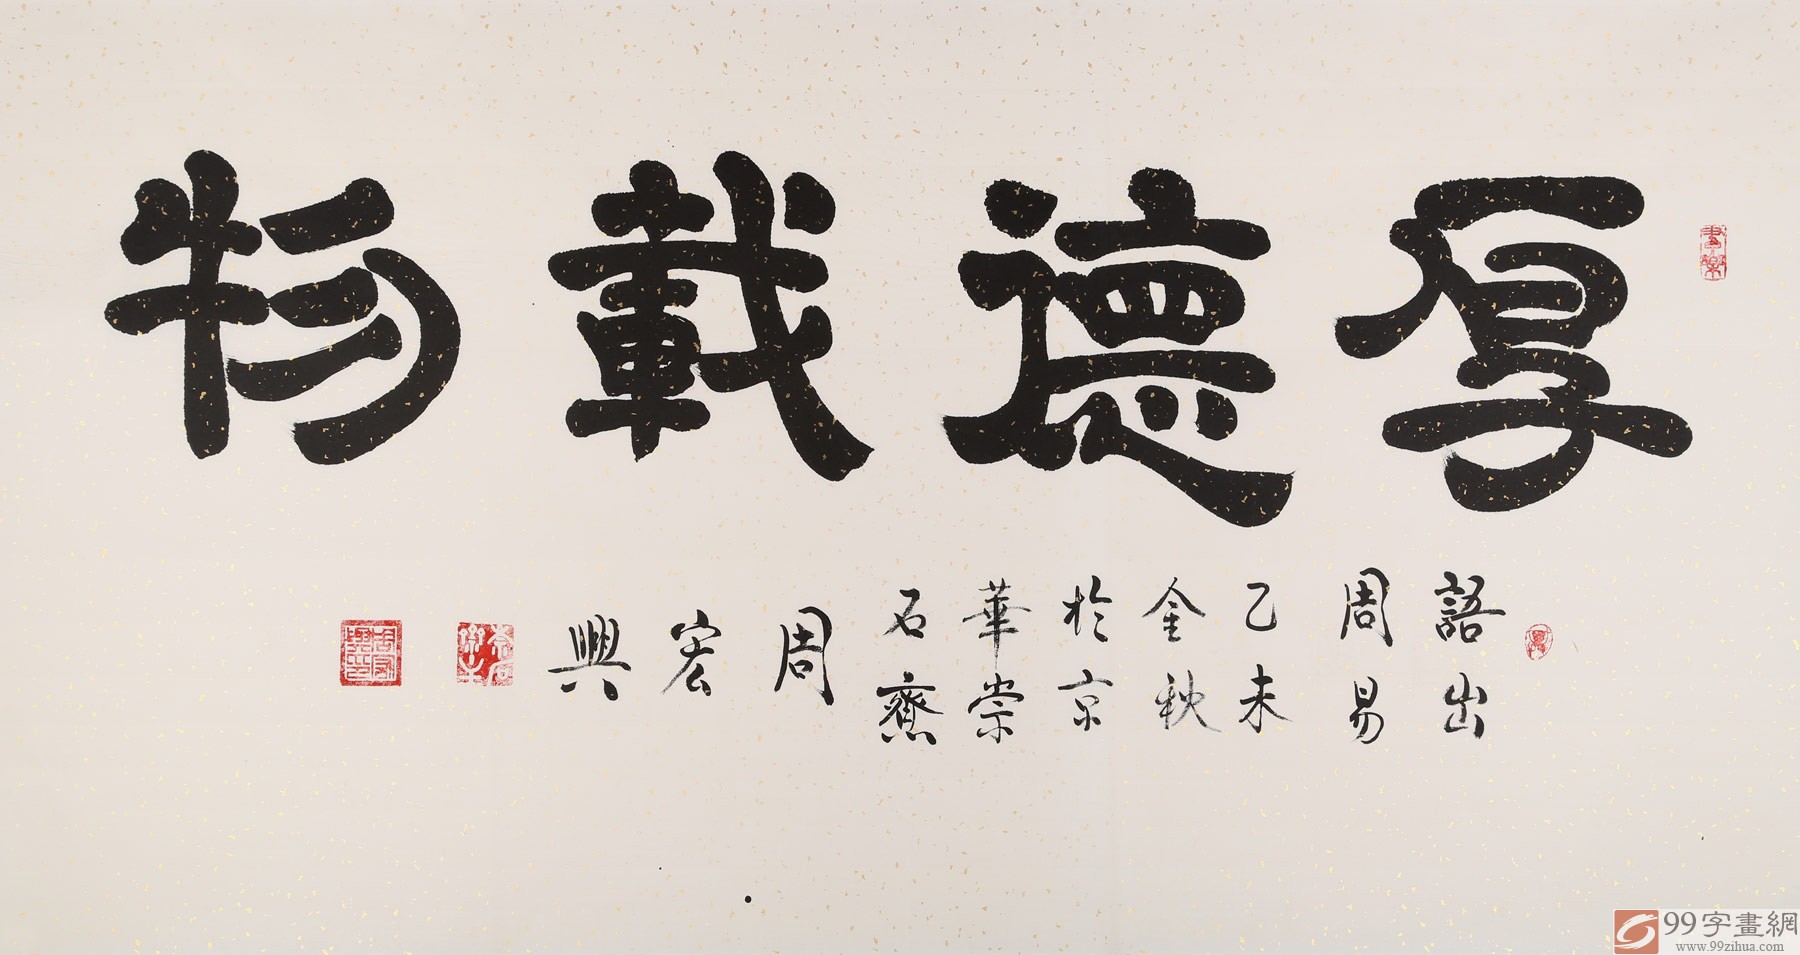 厚德載物
語出
周易
乙未
金秋
於京
華崇
石齋
周
宏
興
99字畫網
www.99zihua.com